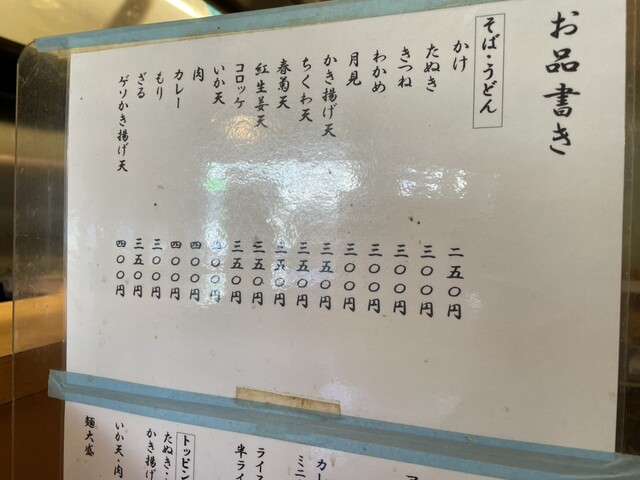 お品書き
そば・うどん
かけ 二五〇円
たぬき 三〇〇円
きつね 三〇〇円
わかめ 三〇〇円
月見 三〇〇円
かき揚げ天 三五〇円
ちくわ天 三五〇円
春菊天 三五〇円
紅生姜天 三五〇円
コロッケ 三五〇円
いか天 四〇〇円
肉 四〇〇円
カレー 四〇〇円
もり 三〇〇円
ざる 三五〇円
ゲソかき揚げ天 四〇〇円
カ
ミニ
ライス
半ライ
トッピン
たぬき・
かき揚げ
いか天・肉
麺大盛